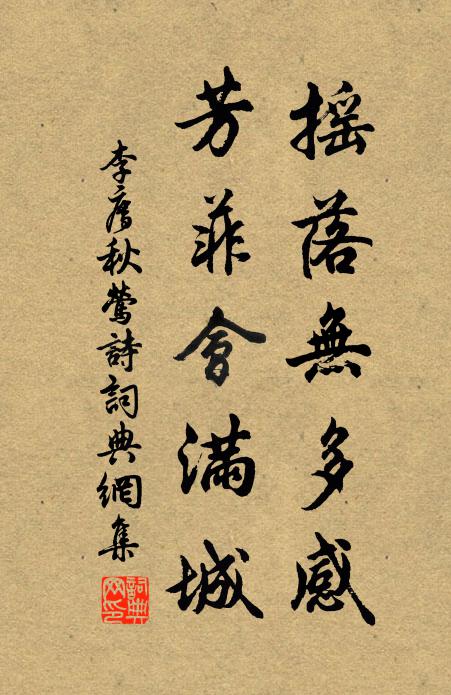 摇落無多感
芳菲會滿城
李秋鶯詩詞典網集
詞典
网印